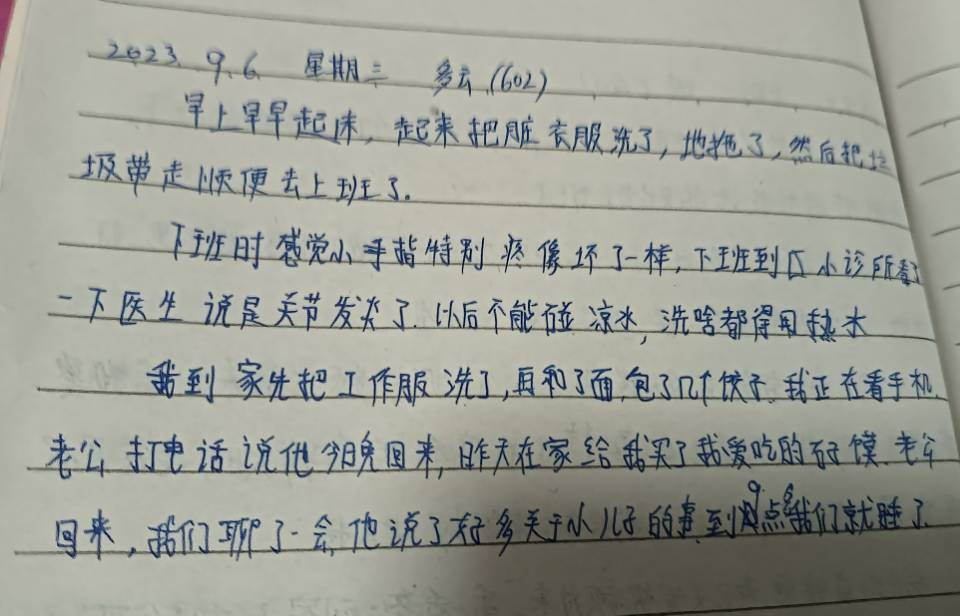 2023. 9.6. 星期三 多云.(602)
早上早早起床,起来把脏衣服洗了,地拖了,然后把垃
圾带走顺便去上班了.
下班时感觉小手指特别疼像坏了一样,下班到区小诊所看了
一下医生说是关节发炎了.以后不能碰凉水,洗啥都得用热水
我到家先把工作服洗了,再和了面,包了几个饺子.我正在看手机.
老公打电话说他今晚回来,昨天在家给我买了我爱吃的石子馍.老公
回来,我们聊了一会,他说了好多关于小儿子的事.到9点多我们就睡了.